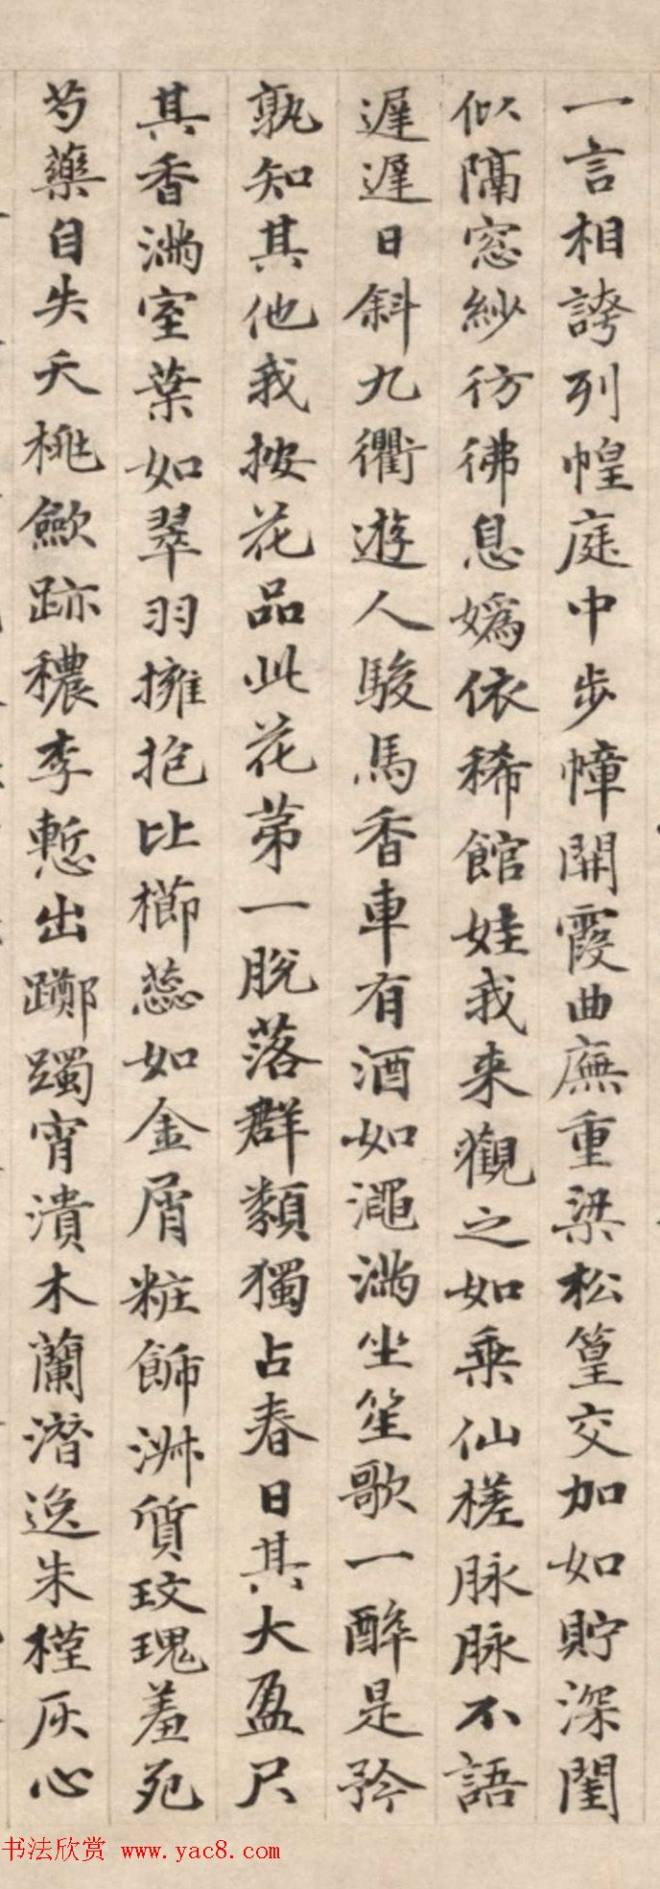 一言相誇列幄庭中步幛開霞曲廡重梁松篁交加如貯深閨
似隔窓紗彷彿息嬀依稀館娃我来觀之如乗仙槎脉脉不語
遲遲日斜九衢遊人駿馬香車有酒如澠満坐笙歌一醉是矜
孰知其他我按花品此花苐一脱落群類獨占春日其大盈尺
其香満室葉如翠羽擁抱比櫛蕊如金屑粧飾淋質玫瑰羞死
芍藥自失夭桃歛跡穠李慙出躑躅宵潰木蘭潜逸朱槿灰心
书法欣赏 www.yac8.com